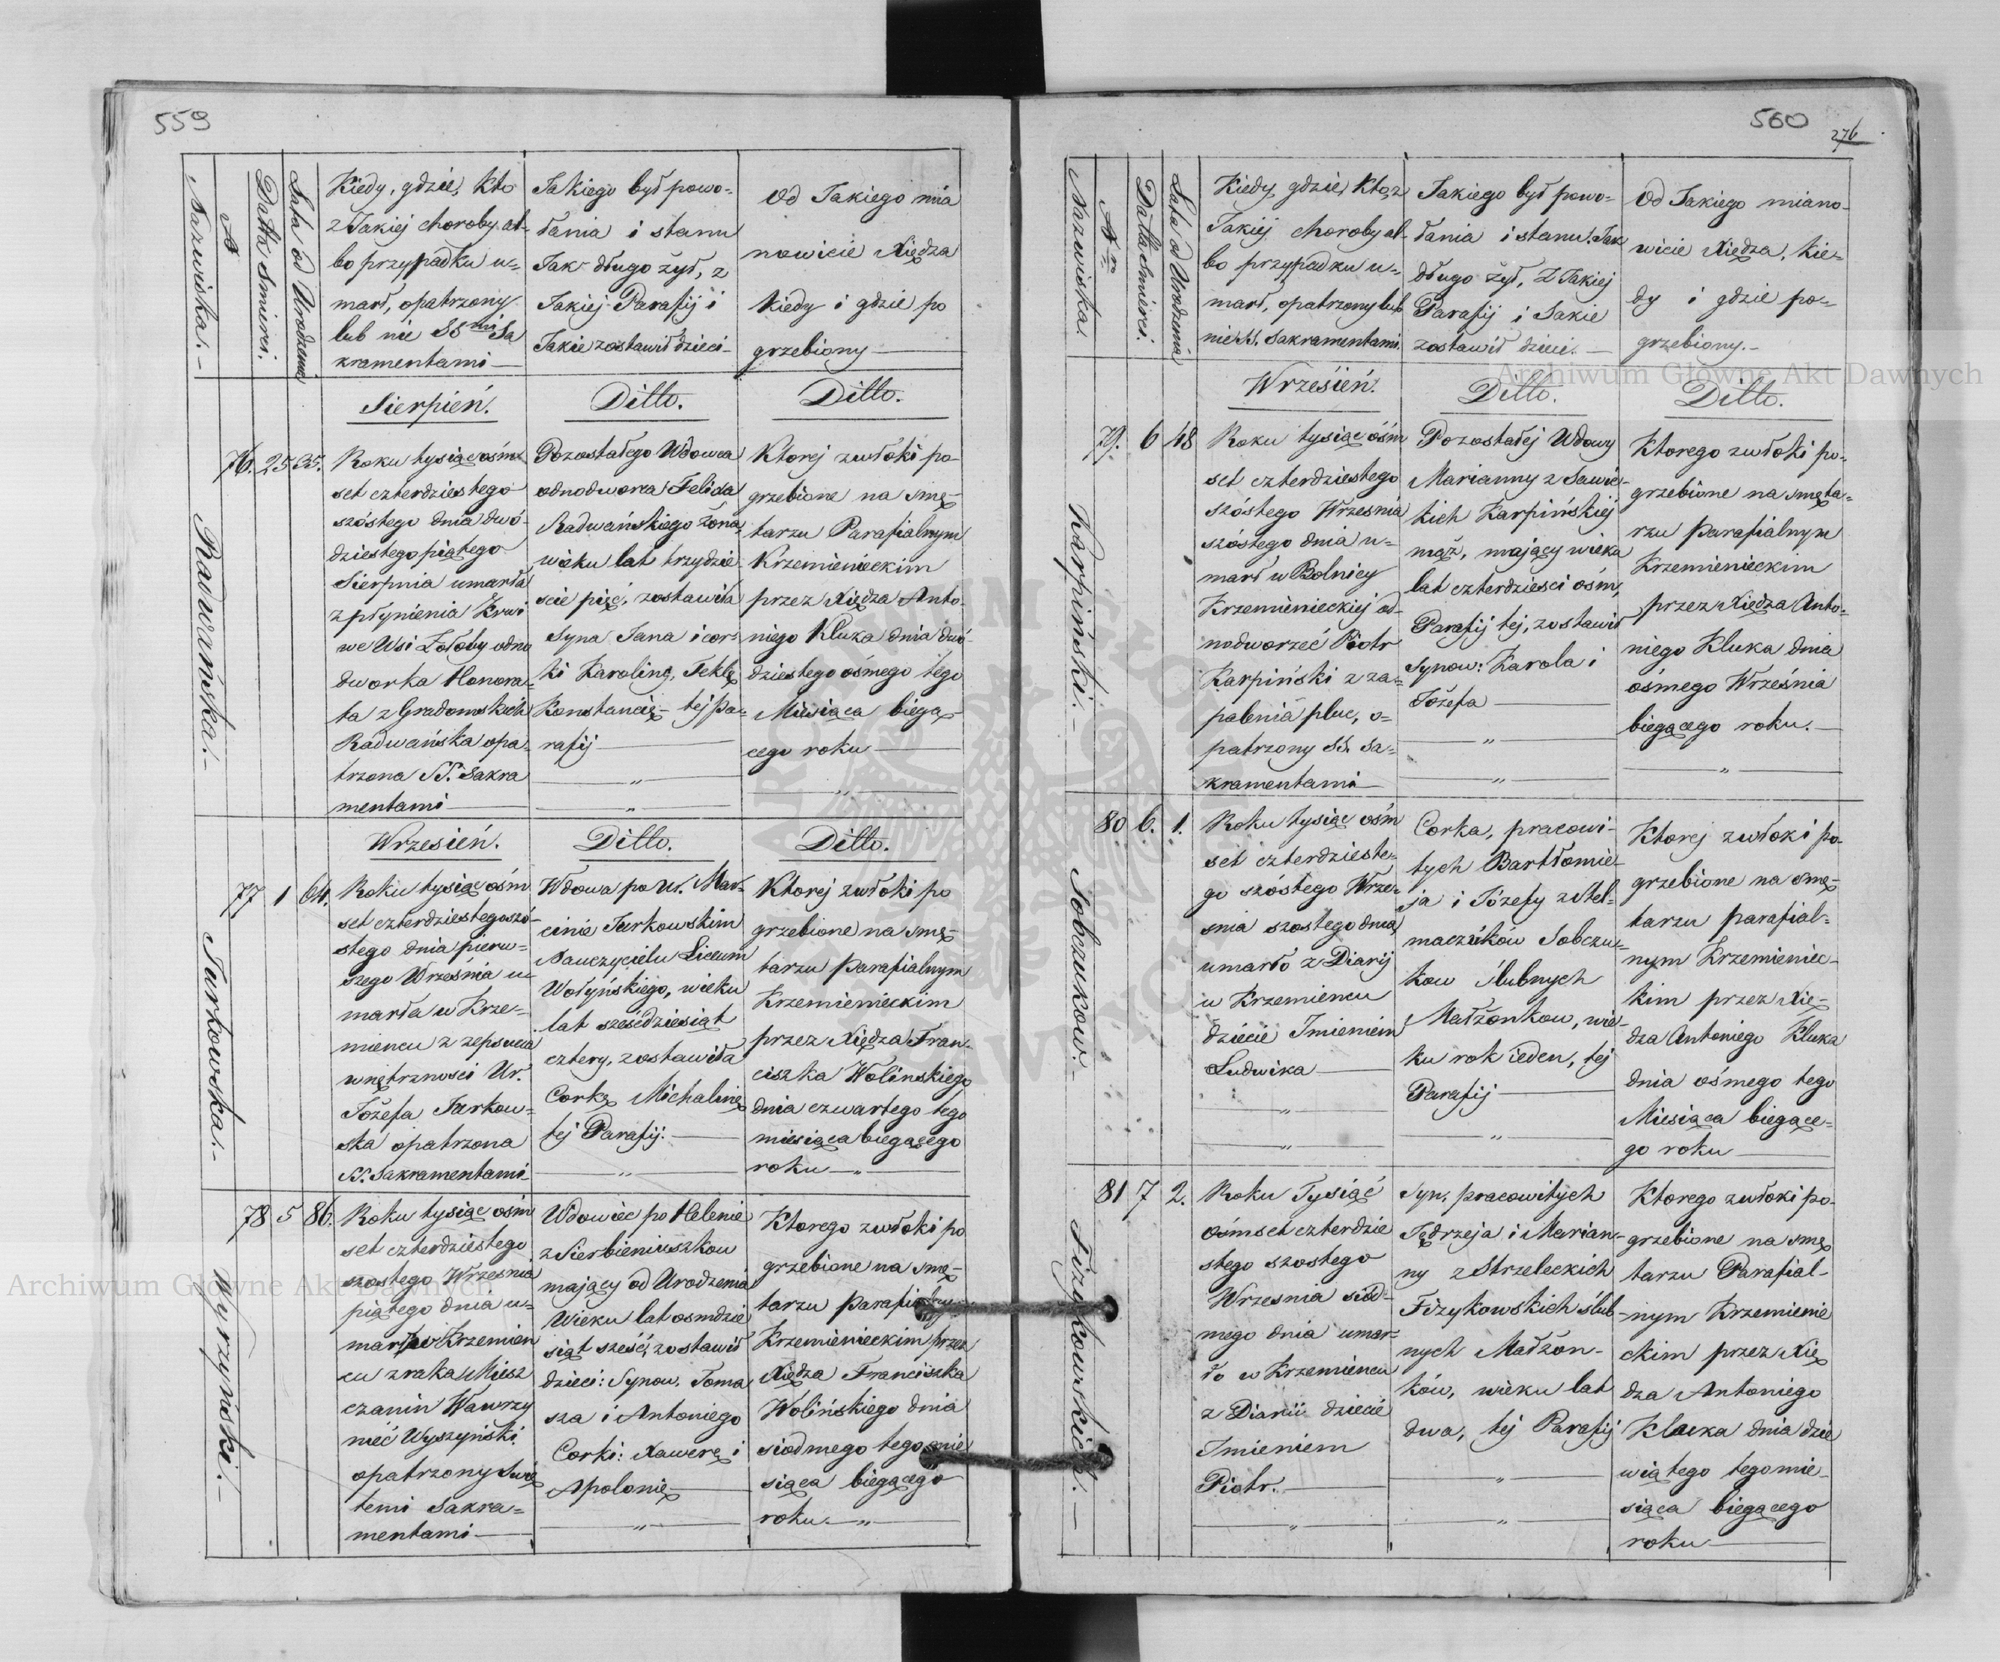 559
Nazwiska.-
№
Datta Smierci.
Lata od Urodzenia
Kiedy, gdzie, kto
z Jakiej choroby al-
bo przypadku u-
marł, opatrzony
lub nie SS mi Sa
kramentami
Jakiego był powo-
łania i stanu
Jak długo żył, z
Jakiej Parafij i
Jakie zostawił dzieci-
Od Jakiego mia
nowicie Xiędza
kiedy i gdzie po
grzebiony
Sierpień.
Ditto.
Ditto.
Radwańska.-
76. 25 35.
Roku tysiąc ośm
set czterdziestego
szóstego dnia dwó-
dziestego piątego
Sierpnia umarła
z płynienia Krwi
we Wsi Zołoby odno
dworka Honora-
ta z Gradomskich
Radwańska opa-
trzona SS. Sakra
mentami
Pozostałego Wdowca
odnodworca Felixa
Radwańskiego żona,
wieku lat trzydzie
ście pięć, zostawiła
Syna Jana i cor-
ki Karolinę, Teklę
Konstancię - tej pa-
rafij
Ktorej zwłoki po-
grzebione na smę-
tarzu Parafialnym
Krzemienieckim
przez Xiędza Anto-
niego Kluka dnia dwó-
dziestego ośmego tego
Miesiąca biegą-
cego roku
Wrzesień.
Ditto.
Ditto.
Jurkowska.-
77 1 64.
Roku tysiąc ośm
set czterdziestego szó-
stego dnia pierw-
szego Września u-
marła w Krze-
miencu z zepsucia
wnętrzności Ur.
Józefa Jurkow-
ska opatrzona
SS. Sakramentami
Wdowa po Ur. Mar-
cinie Jurkowskim
Nauczycielu Liceum
Wołyńskiego, wieku
lat sześćdziesiąt
cztery, zostawiła
Corkę Michalinę
tej Parafij.
Ktorej zwłoki po
grzebione na smę-
tarzu parafialnym
Krzemienieckim
przez Xiędza Fran-
ciszka Wolinskiego
dnia czwartego tego
miesiąca biegącego
roku
Wyrzyński.-
78 5 86.
Roku tysiąc ośm
set czterdziestego
szostego Września
piątego dnia u-
marł w Krzemien
cu z raka Miesz
czanin Wawrzy
niec Wyszyński
opatrzony Swię
temi Sakra-
mentami
Wdowiec po Helenie
z Sierbieniuszkow
mający od Urodzenia
Wieku lat ośmdzie
siąt sześć, zostawił
dzieci: Synow. Toma
sza i Antoniego
Corki: Xawerę i
Apolonię
Ktorego zwłoki po
grzebione na smę-
tarzu parafialny
Krzemienieckim przez
Xiędza Franciszka
Wolińskiego dnia
siodmego tego mie
siąca biegącego
roku.
560
276
Nazwiska.
Nro
Datta Smierci.
Lata od Urodzenia
Kiedy, gdzie, Kto, z
Jakiej choroby al-
bo przypadku u-
marł, opatrzony lub
nie SS. Sakramentami.
Jakiego był powo-
łania i stanu. Jak
długo żył, Z Jakiej
Parafij i Jakie
zostawił dzieci.
Od Jakiego miano-
wicie Xiędza, kie-
dy i gdzie po-
grzebiony.-
Wrzesień.
Ditto.
Ditto.
Karpiński.-
79. 6 48
Roku tysiąc ośm
set czterdziestego
szóstego Września
szóstego dnia u-
marł w Bolnicy
Krzemienieckiej od-
nodworzec Piotr
Karpiński z za-
palenia pluc, o-
patrzony SS. Sa-
kramentami
Pozostałej Wdowy
Marianny z Sawic-
kich Karpińskiej
mąż, mający wieka
lat czterdzieści ośm,
Parafij tej, zostawił
Synow: Karola i
Józefa
Ktorego zwłoki po-
grzebione na smęta-
rzu parafialnym
Krzemienieckim
przez Xiędza Anto-
niego Kluka dnia
ośmego Września
biegącego roku.
Sobczukow.-
80 6. 1.
Roku tysiąc ośm
set czterdzieste-
go szóstego Wrze-
snia szostego dnia
umarło z Diarij
w Krzemiencu
dziecie Imieniem
Ludwika
Corka, pracowi-
tych Bartłomie-
ja i Józefy z Mel-
maczuków Sobczu-
kow ślubnych
Małżonkow, wie-
ku rok ieden, tej
Parafij
Ktorej zwłoki po-
grzebione na smę-
tarzu parafial-
nym Krzemieniec-
kim przez Xię-
dza Antoniego Kluka
dnia ośmego tego
Miesiąca biegące-
go roku
Fizykowskich.-
81 7 2.
Roku Tysiąć
ośmset czterdzie
stego szostego
Wrzesnia siód-
mego dnia umar-
ło w Krzemiencu
z Diarii dziecie
Imieniem
Piotr.
Syn, pracowitych
Jędrzeja i Marian-
ny z Strzeleckich
Fizykowskich ślub-
nych Małżon-
ków, wieku lat
dwa, tej Parafij
Ktorego zwłoki po-
grzebione na smę
tarzu Parafial-
nym Krzemienie
ckim przez Xię
dza Antoniego
Kluka dnia dzie
wiątego tego mie-
siąca biegącego
roku
Archiwum Główne Akt Dawnych
Archiwum Główne Akt Dawnych